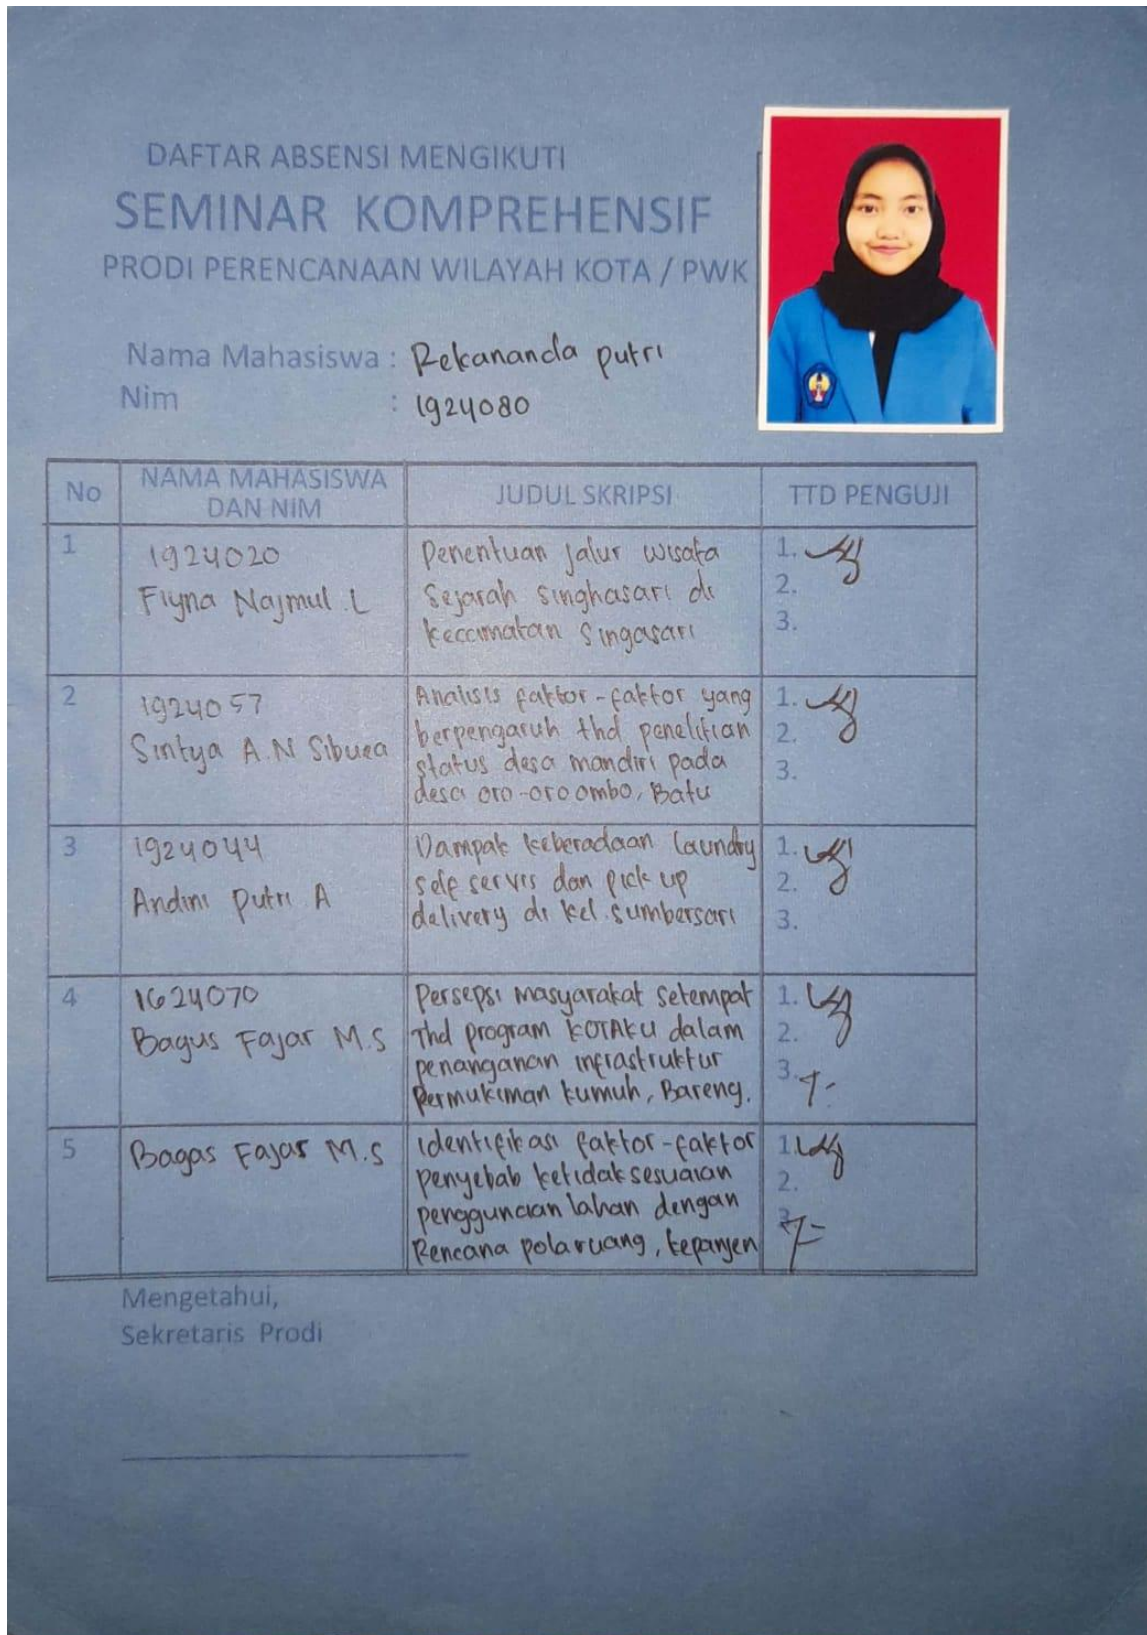 DAFTAR ABSENSI MENGIKUTI
SEMINAR KOMPREHENSIF
PRODI PERENCANAAN WILAYAH KOTA / PWK
Nama Mahasiswa : Rekananda putri
Nim : 1924080
No
NAMA MAHASISWA
DAN NIM
JUDUL SKRIPSI
TTD PENGUJI
1
1924020
Fiyna Najmul . L
Penentuan jalur wisata
Sejarah singhasari di
kecamatan Singasari
1.
2.
3.
2
1924057
Sintya A.N Sibuea
Analisis faktor-faktor yang
berpengaruh thd penelitian
status desa mandiri pada
desa oro-oro ombo, Batu
1.
2.
3.
3
1924044
Andini Putri A
Dampak keberadaan laundry
self servis dan pick up
delivery di kel. sumbersari
1.
2.
3.
4
1624070
Bagus Fajar M.S
Persepsi Masyarakat setempat
Thd program KOTAKU dalam
penanganan infrastruktur
Permukiman kumuh, Bareng.
1.
2.
3.
5
Bagas Fajar M.S
Identifikasi faktor-faktor
penyebab ketidak sesuaian
penggunaan lahan dengan
Rencana pola ruang, kepanjen
1.
2.
3.
Mengetahui,
Sekretaris Prodi